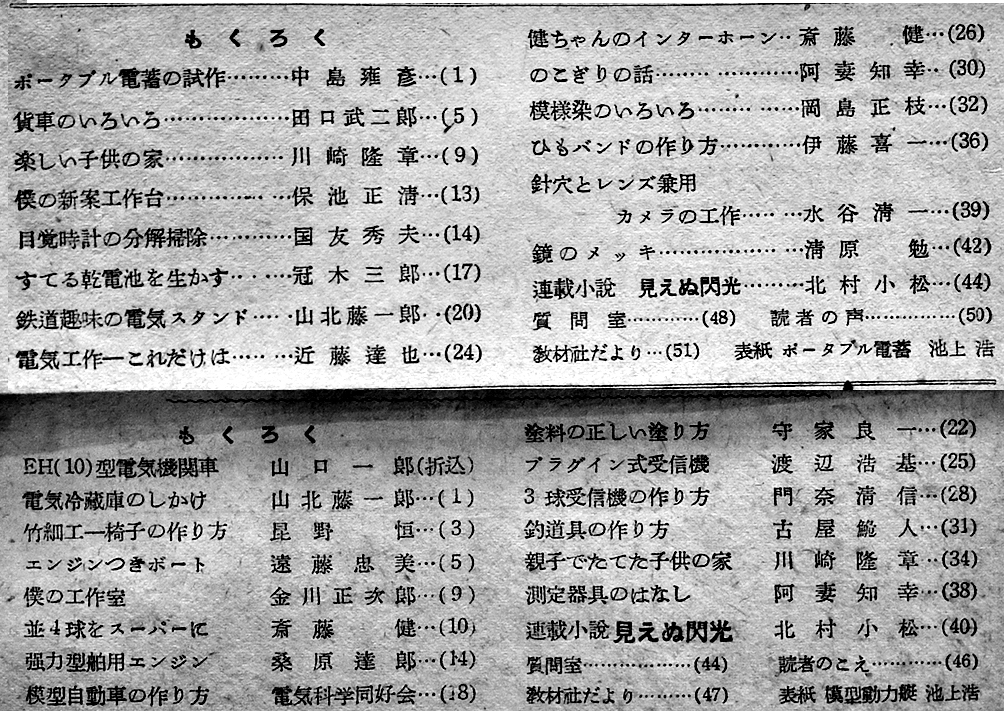 もくろく
ポータブル電蓄の試作………中島雍彦…(1)
貨車のいろいろ………………田口武二郎…(5)
楽しい子供の家………………川崎隆章…(9)
僕の新案工作台………………保池正淸…(13)
目覚時計の分解掃除…………国友秀夫…(14)
すてる乾電池を生かす………冠木三郎…(17)
鉄道趣味の電気スタンド……山北藤一郎…(20)
電気工作―これだけは………近藤達也…(24)
健ちゃんのインターホーン…斎藤健…(26)
のこぎりの話…………………阿妻知幸…(30)
模様染のいろいろ……………岡島正枝…(32)
ひもバンドの作り方…………伊藤喜一…(36)
針穴とレンズ兼用
カメラの工作………水谷淸一…(39)
鏡のメッキ……………………淸原勉…(42)
連載小説 見えぬ閃光………北村小松…(44)
質問室…………(48) 読者の声……………(50)
教材社だより…(51) 表紙 ポータブル電蓄 池上浩
もくろく
EH(10)型電気機関車 山口一郎(折込)
電気冷蔵庫のしかけ 山北藤一郎…(1)
竹細工―椅子の作り方 昆野恒…(3)
エンジンつきボート 遠藤忠美…(5)
僕の工作室 金川正次郎…(9)
並4球をスーパーに 斎藤健…(10)
强力型舶用エンジン 桑原達郎…(14)
模型自動車の作り方 電気科学同好会…(18)
塗料の正しい塗り方 守家良一…(22)
プラグイン式受信機 渡辺浩基…(25)
3球受信機の作り方 門奈清信…(28)
釣道具の作り方 古屋 人…(31)
親子でたてた子供の家 川崎隆章…(34)
測定器具のはなし 阿妻知幸…(38)
連載小説 見えぬ閃光 北村小松…(40)
質問室………………(44) 読者のこえ…………(46)
教材社だより………(47) 表紙 模型動力艇 池上浩